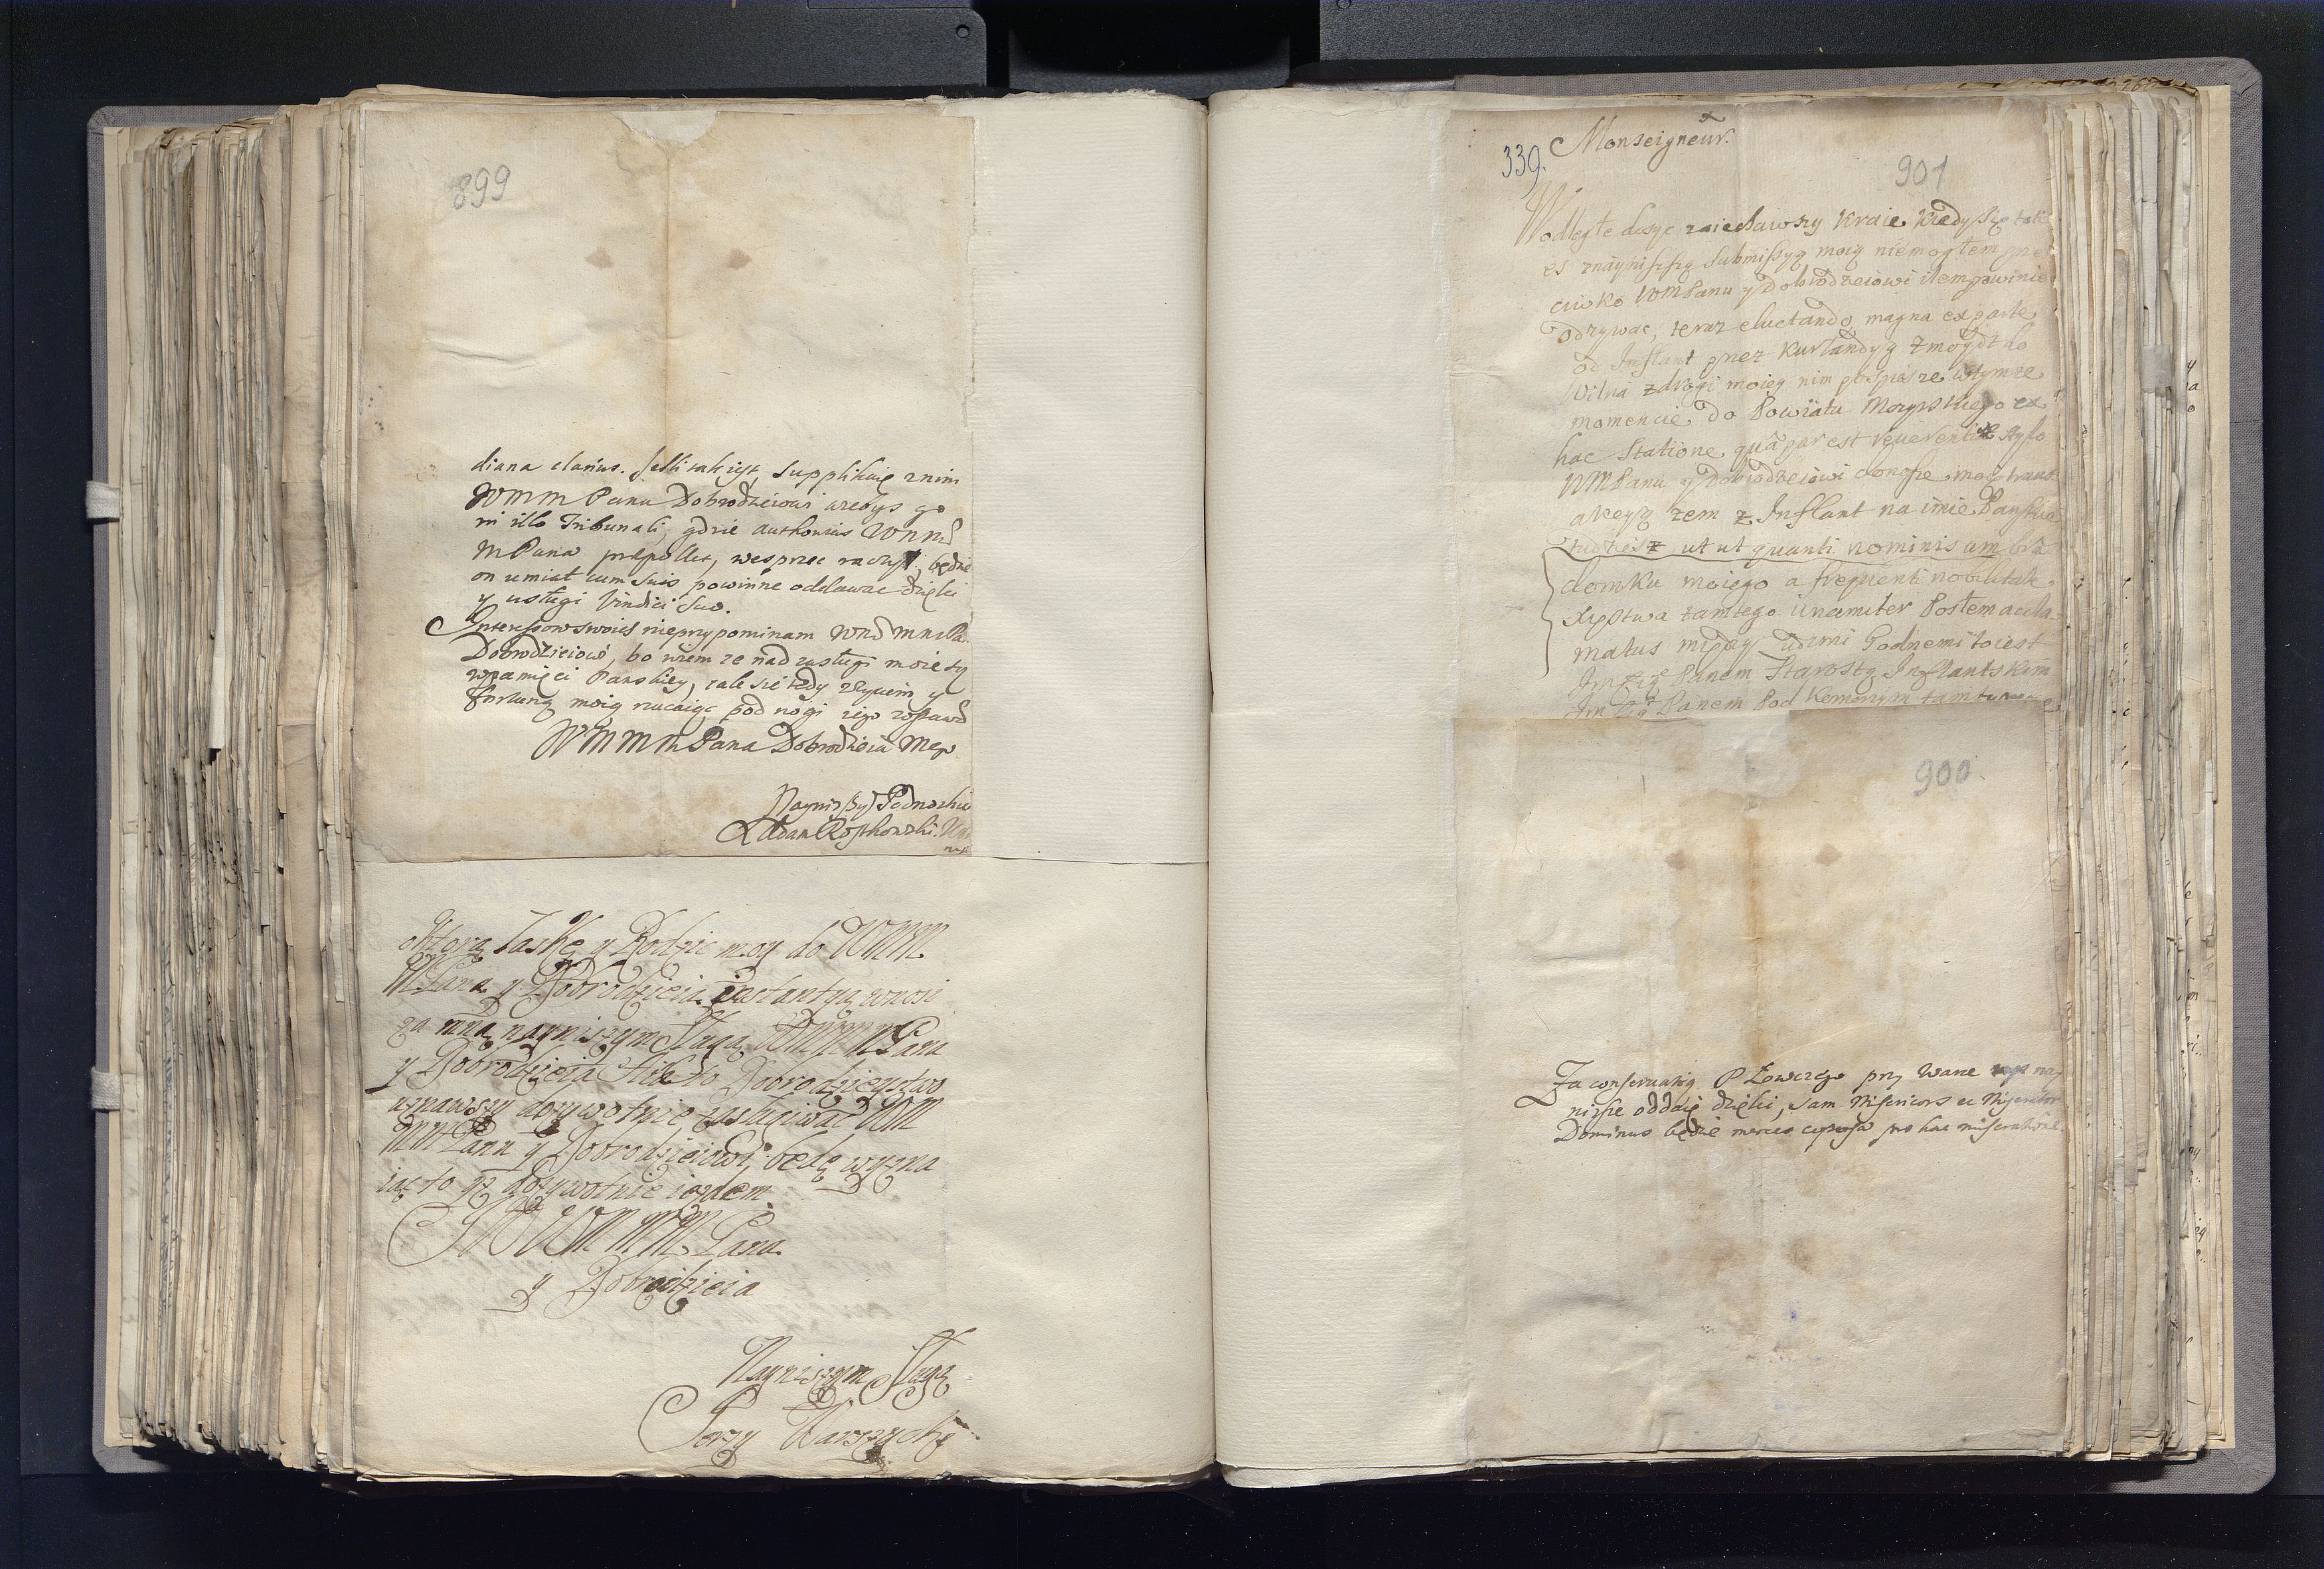 899
diana clarius. Jeśli tak iest, supplikuię z nim
WMM Panu Dobrodzieiowi azebys go
in illo Tribunali, gdzie authoritas WMM
MPana præpollet, wesprzec raczył, będzie
on umiał cum suis powinne oddawac dzięki
y usługi Vindici suo.
Interessow swoich nieprzypominam WMMMPa.
Dobrodzieiowi, bo wiem ze nad zasługi moie są
w pamięci Panskiey, cale się tedy z życiem y
fortuną moią rzucaiąc pod nogi iego zostawam
WMMMPana Dobrodzieia Mego
Nayniższy Podnozek
Adam Roszkowski
ktorą łaskę y Rodzic moy do WMM
MPana y Dobrodzieia instantyą wnosi
za mną nayniszym Sługą WMMMPana
y Dobrodzieia tak to Dobrodzieystwo
uznawszy dozywotnie zasługiwac WM
MM Panu y Dobrodzieiowi będę wyzna
iąc to yz dozywotnie iestem
WMMM Pana
y Dobrodzieia
Nayniszym Sługą
Jerzy Warszycki
339.
Monseigneur.
901
W odległe dosyc zaiechawszy Kraie kiedy się tak
z nayniszszą submissyą moią niemogłem prze
ciwko WMPanu y Dobrodzieiowi ilem powinien
odzywac, teraz eluctando magna ex parte
od Inflant przez Kurlandyą Zmoydz do
Wilna z drogi moiey nim pospiesze w tymze
momencie do Powiatu Mozyrskiego ex
hac Statione quâ par est reverentiæ stylo
WMPanu y Dobrodzieiowi donosze moy
akcyą zem z Inflant na imie Panskie
tudziesz ut ut quanti nominis umbra
domku moiego a frequenti nobilitate
Xięstwa tamtego unamiter Posłem accla
matus między ludzmi Godnemi to iest
Panem Starostą Inflantskim
Panem Pod Komorzym tamtym
900
Za conserwatią P Łowczego przy Wane nay
nizsze oddaię dzięki, sam Misericors et Miserator
Dominus będzie merces copiosa pro hac miseratione